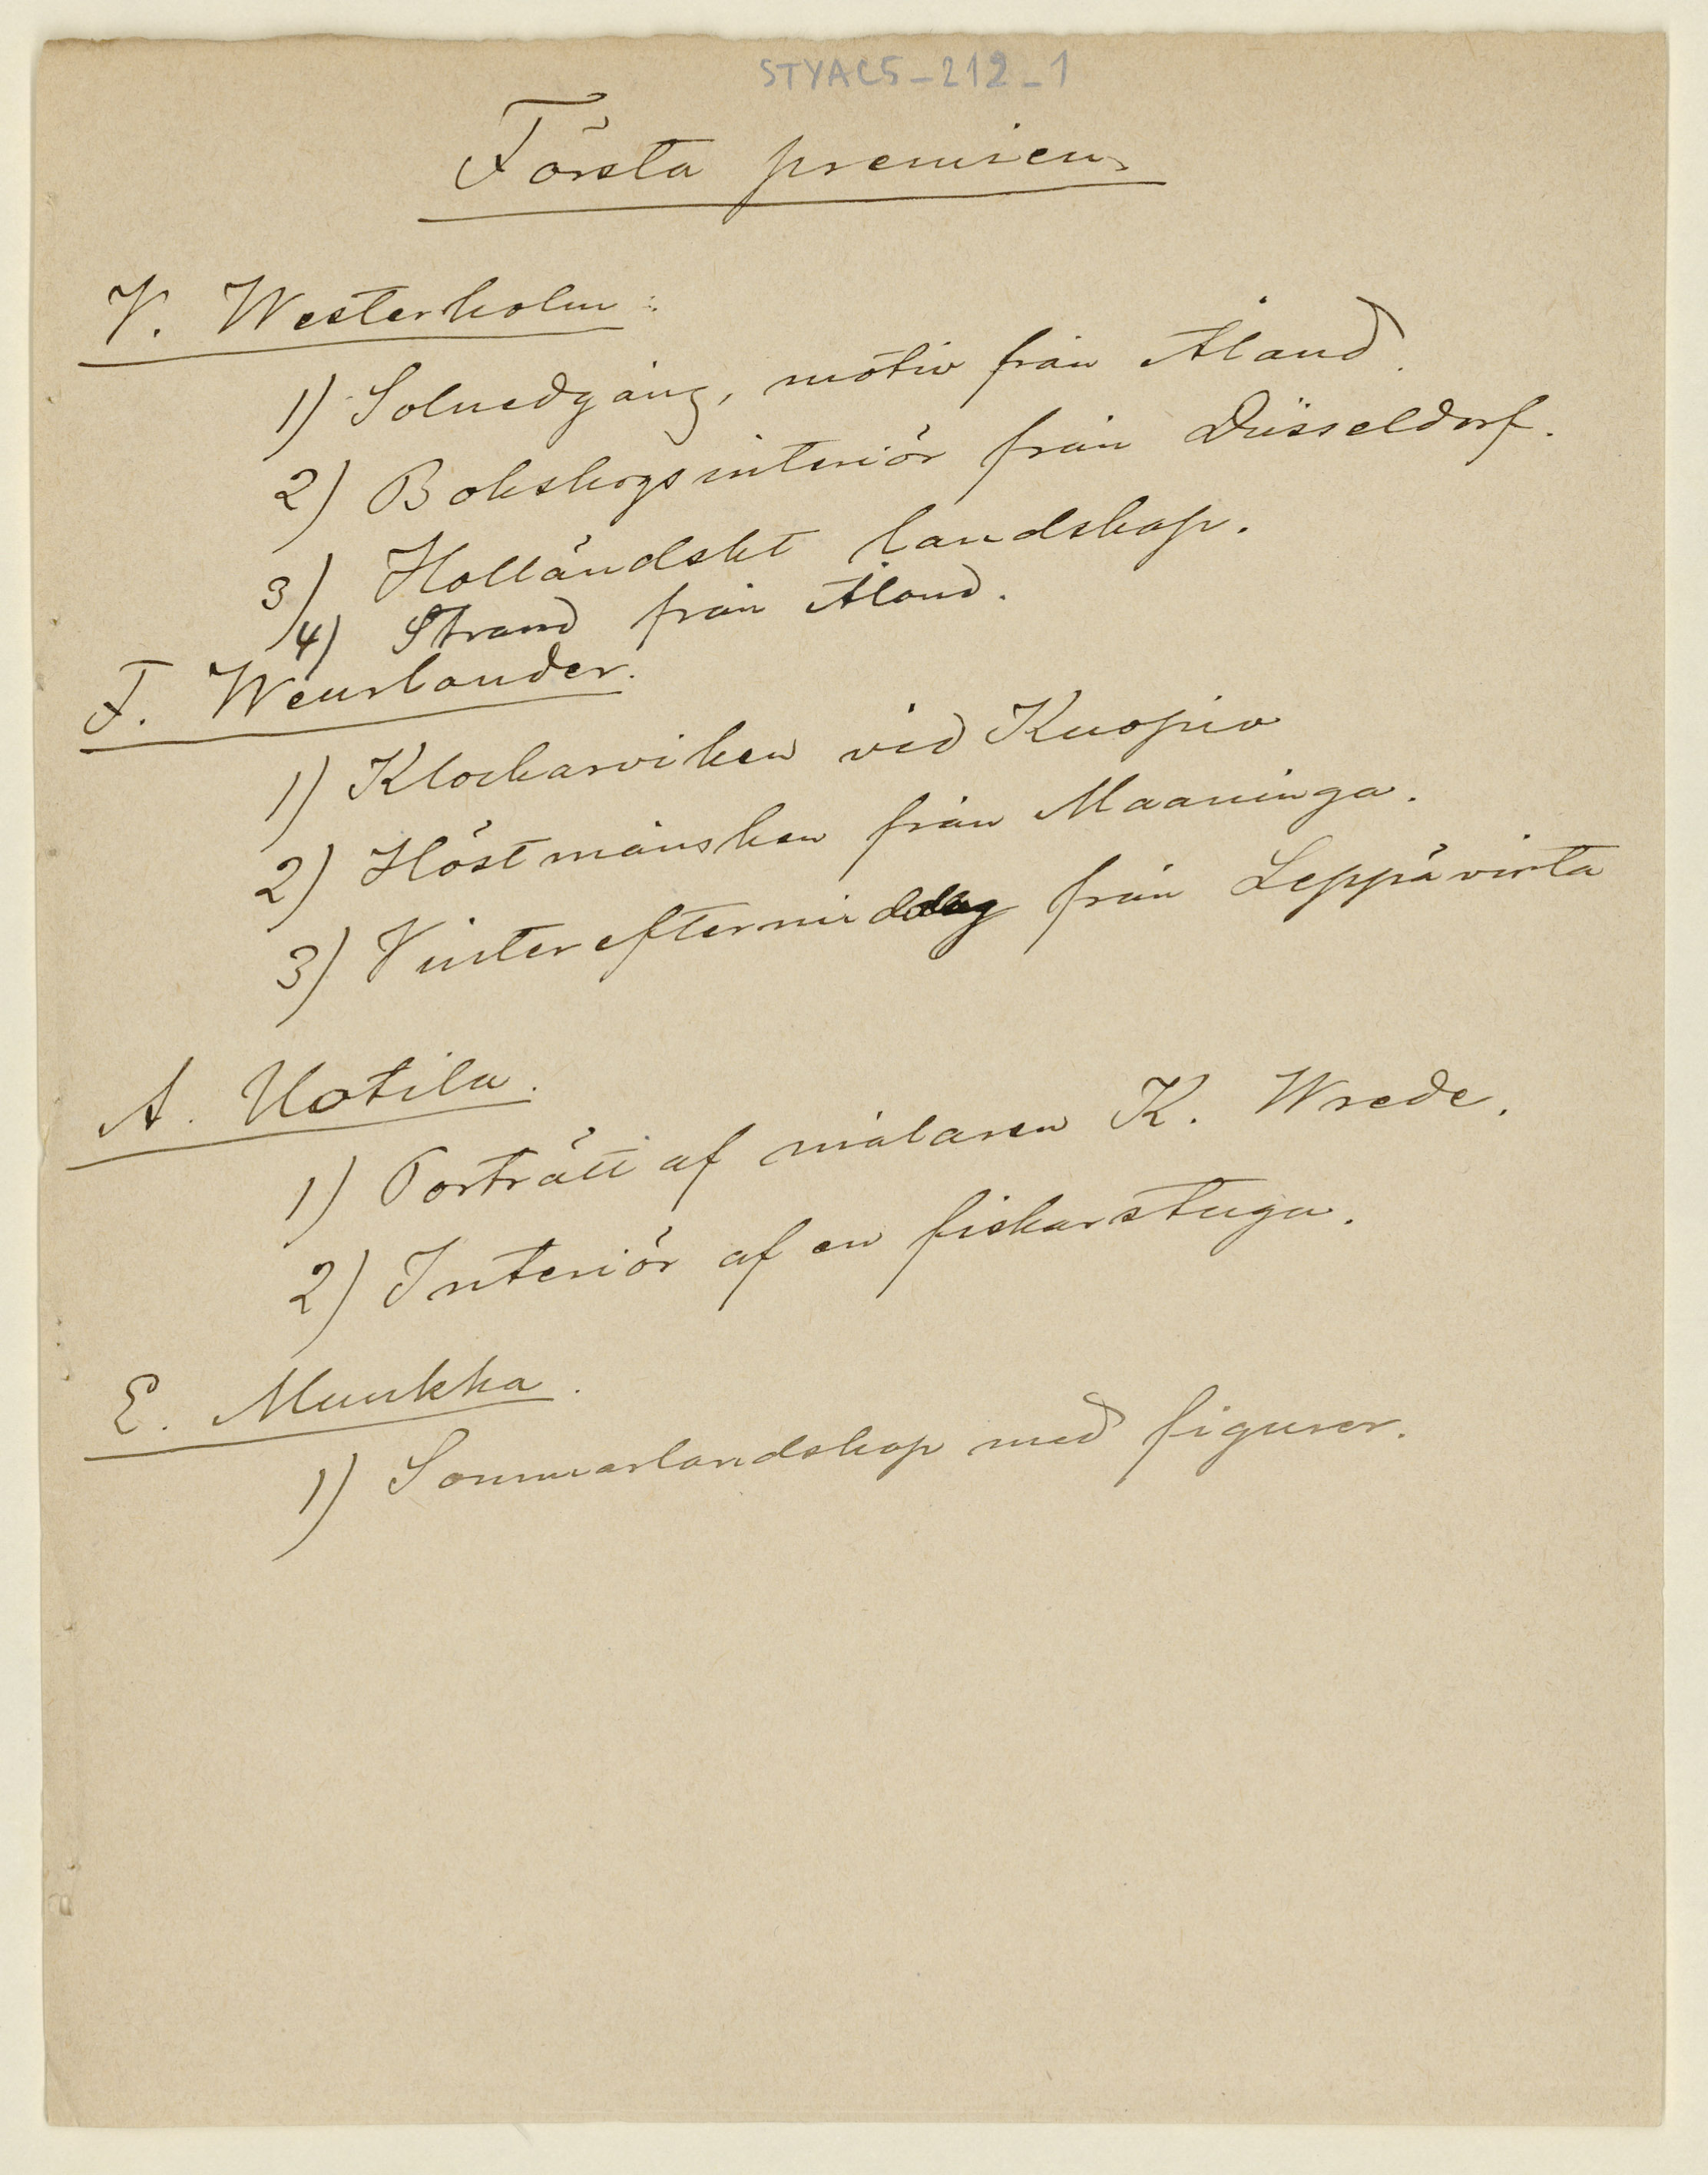 STYAC5-212-1
Första premien
V. Westerholm:
1) Solnedgång, motiv från Åland.
2) Bokskogsinteriör från Düsseldorf.
3) Holländskt landskap.
4) Strand från Åland.
F. Wenrlander.
1) Klockarviken vid Kuopio
2) Höstmånsken från Maaninga.
3) Vintereftermiddag från Leppävirta
A. Uotila.
1) Porträtt af målaren K. Wrede.
2) Interiör af en fiskarstuga.
E. Muukka.
1) Sommarlandskap med figurer.